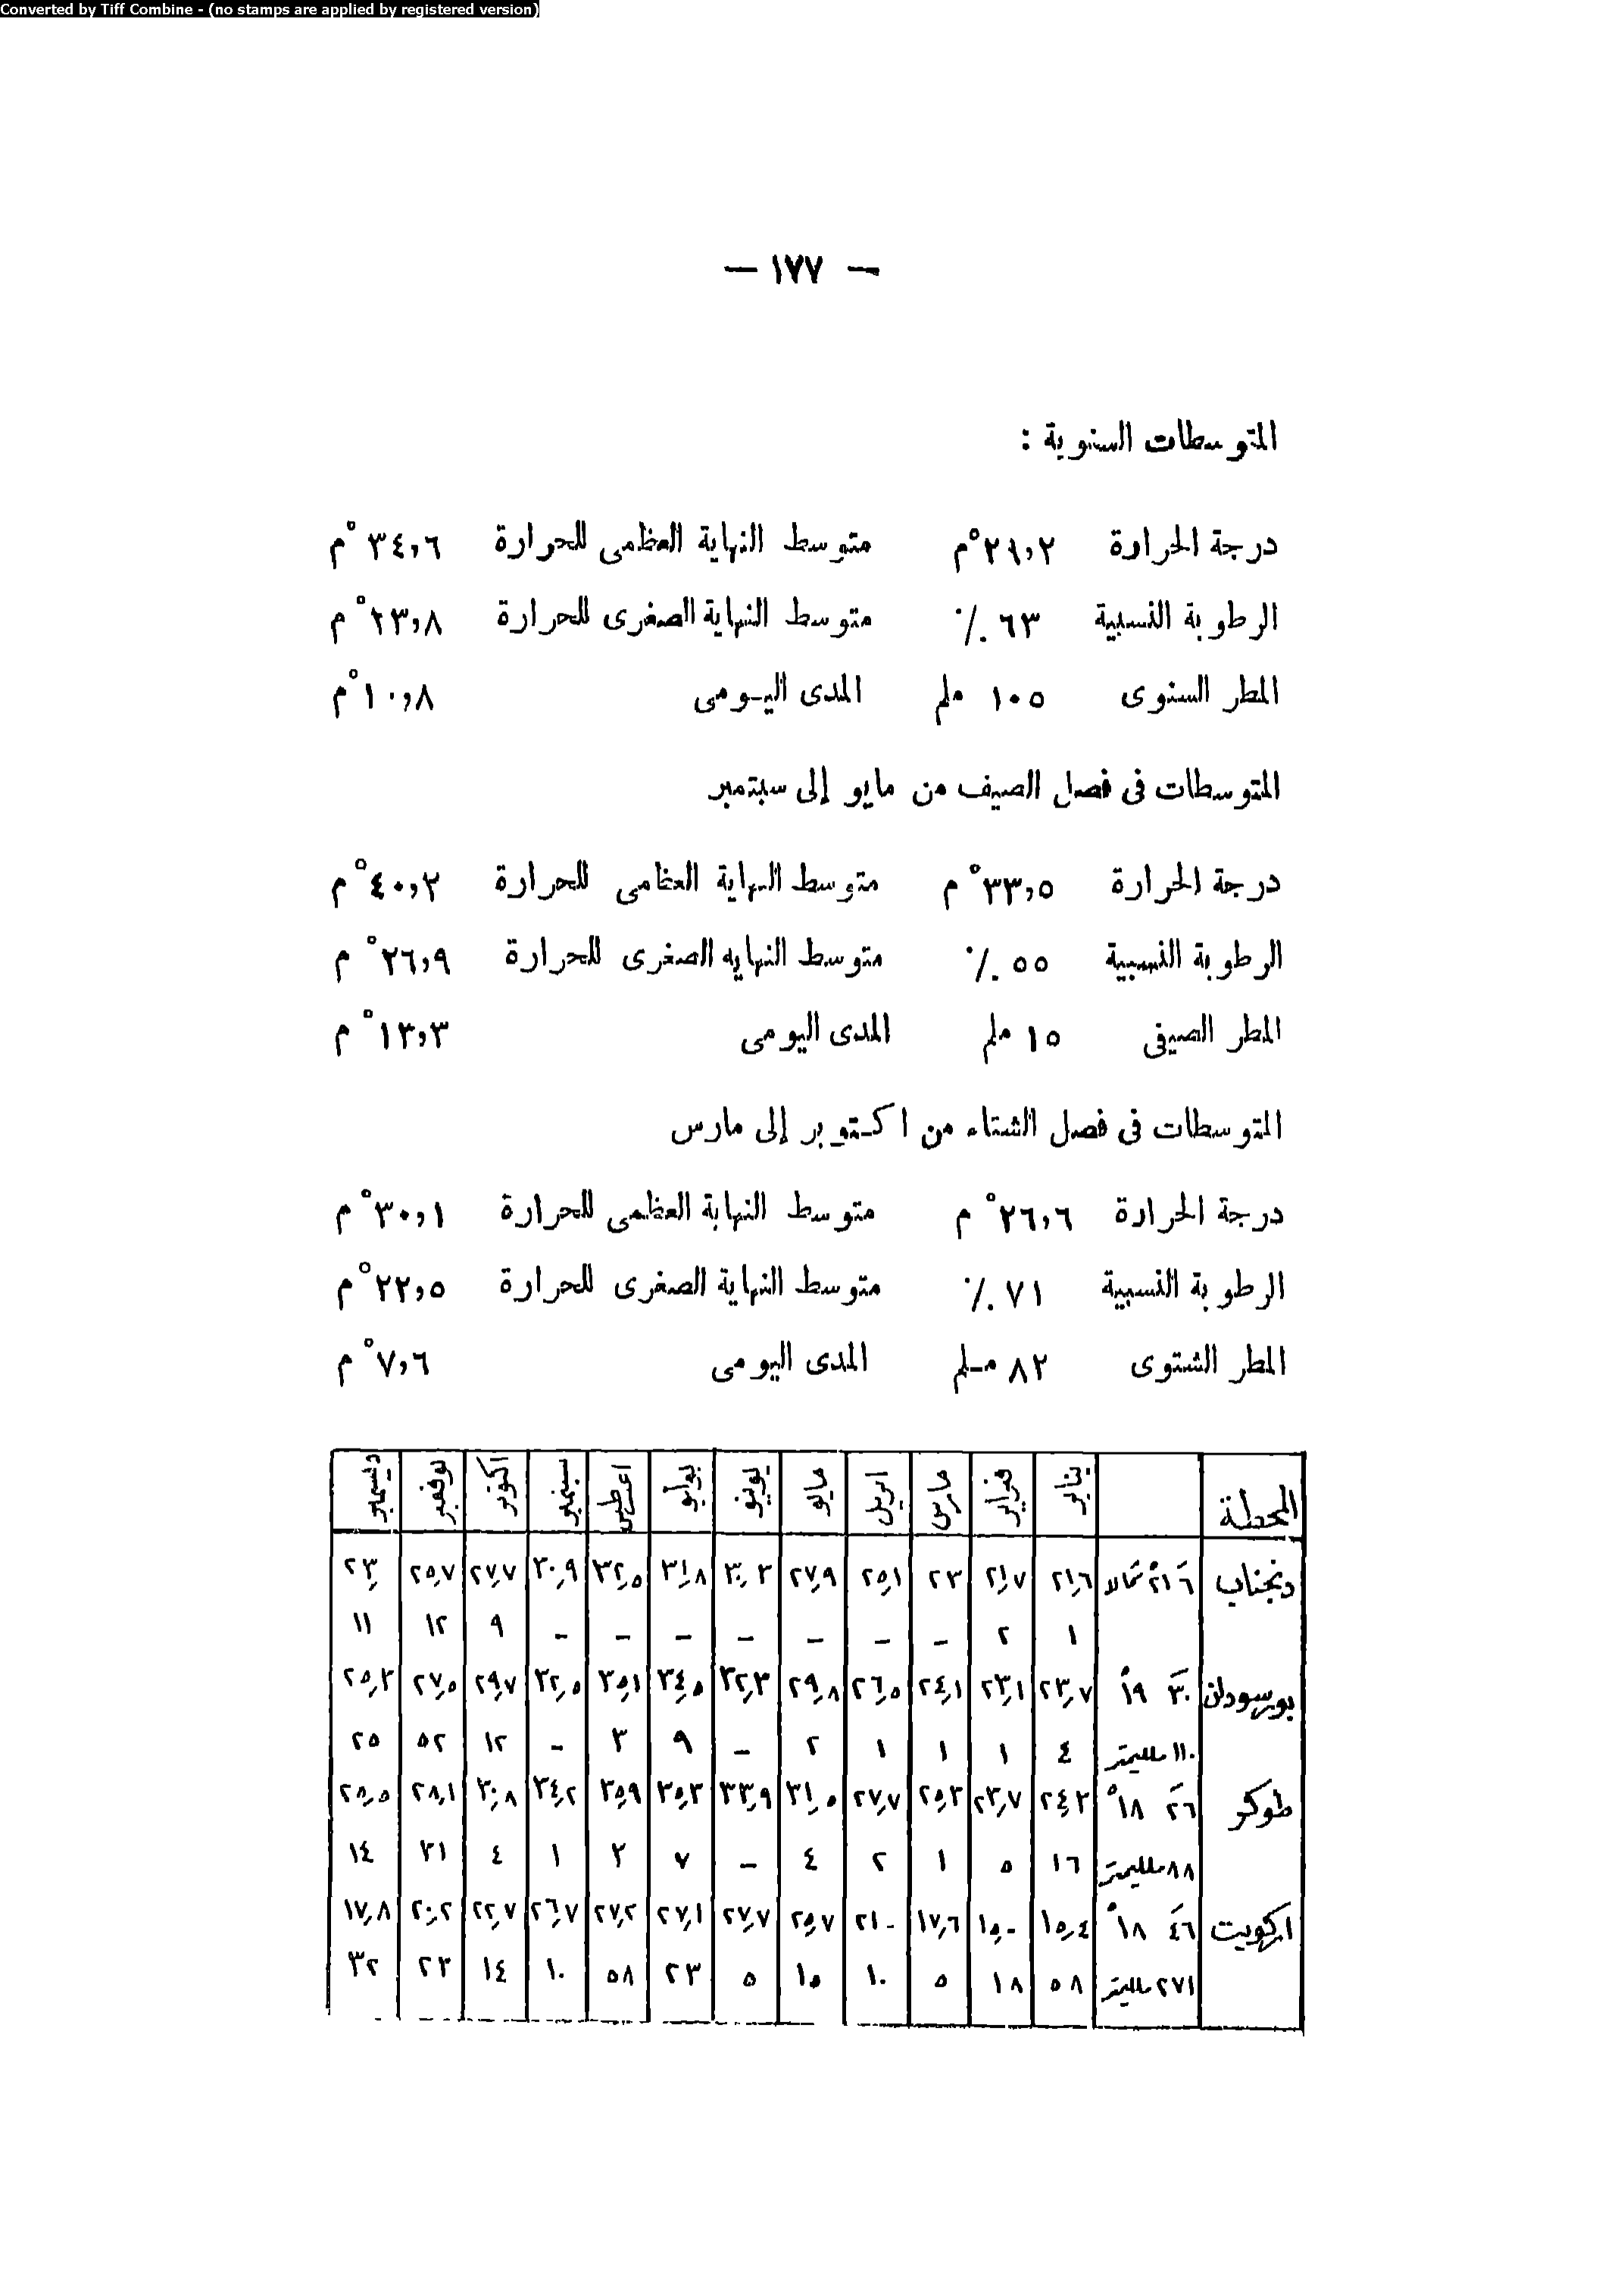 Converted by Tiff Combine - (no stamps are applied by registered version)
— ١٧٧ —
المتوسطات السنوية :
درجة الحرارة ٢٩,٢°م متوسط النهاية العظمى للحرارة ٣٤,٦°م
الرطوبة النسبية ٦٣ ٪ متوسط النهاية الصغرى للحرارة ٢٣,٨°م
المطر السنوى ١٠٥ ملم المدى اليومى ١٠,٨°م
المتوسطات فى فصل الصيف من مايو إلى سبتمبر
درجة الحرارة ٣٣,٥°م متوسط النهاية العظمى للحرارة ٤٠,٢°م
الرطوبة النسبية ٥٥ ٪ متوسط النهايه الصغرى للحرارة ٢٦,٩°م
المطر الصيفى ١٥ ملم المدى اليومى ١٣,٣°م
المتوسطات فى فصل الشتاء من اكتوبر إلى مارس
درجة الحرارة ٢٦,٦°م متوسط النهاية العظمى للحرارة ٣٠,١°م
الرطوبة النسبية ٧١ ٪ متوسط النهاية الصغرى للحرارة ٢٢,٥°م
المطر الشتوى ٨٢ ملم المدى اليومى ٧,٦°م
المحطة يناير فبراير مارس ابريل مايو يونيو يوليو اغطس سبتمبر اكتوبر نوفمبر ديسمبر
دنجناب ٦َ ٢١° شمالا ٢١,٦ ٢١,٧ ٢٣ ٢٥,١ ٢٧,٩ ٣٠,٣ ٣١,٨ ٣٢,٥ ٣٠,٩ ٢٧,٧ ٢٥,٧ ٢٣,
١ ٢ – – – – – – – ٩ ١٢ ١١
بورسودان ٣٠َ ١٩° ٢٣,٧ ٢٣,١ ٢٤,١ ٢٦,٥ ٢٩,٨ ٣٢,٣ ٣٤,٥ ٣٥,١ ٣٢,٥ ٢٩,٧ ٢٧,٥ ٢٥,٣
١١٠ ملليمتر ٤ ١ ١ ١ ٢ – ٩ ٣ – ١٢ ٥٢ ٢٥
طوكر ٢٦َ ١٨° ٢٤,٣ ٢٣,٧ ٢٥,٣ ٢٧,٧ ٣١,٥ ٣٣,٩ ٣٥,٣ ٣٥,٩ ٣٤,٢ ٣٠,٨ ٢٨,١ ٢٥,٥
٨٨ ملليمتر ١٦ ٥ ١ ٢ ٤ – ٧ ٢ ١ ٤ ٣١ ١٤
اركويت ٤٦َ ١٨° ١٥,٤ ١٥,- ١٧,٦ ٢١- ٢٥,٧ ٢٧,٧ ٢٧,١ ٢٧,٢ ٢٦,٧ ٢٢,٧ ٢٠,٢ ١٧,٨
٢٧١ ملليمتر ٥٨ ١٨ ٥ ١٠ ١٥ ٥ ٢٣ ٥٨ ١٠ ١٤ ٢٣ ٣٢